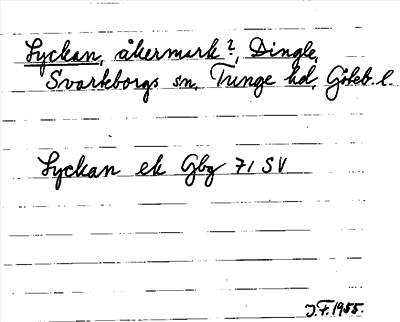 Lyckan, åkermark?, Dingle,
Svarteborgs sn, Tunge hd, Göteb. l.
Lyckan ek Gbg 71 SV
J.F. 1955.